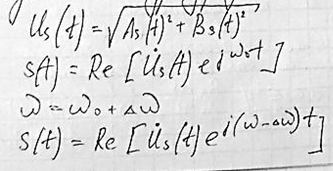 U_s(t) = √(A_s(t)² + B_s(t)²)
S(t) = Re [U̇_s(t) e^{jω₀t}]
ω = ω₀ + Δω
S(t) = Re [U̇_s(t) e^{j(ω-Δω)t}]